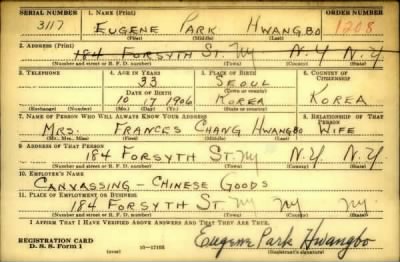 SERIAL NUMBER 1. NAME (Print) ORDER NUMBER
3117 EUGENE PARK HWANGBO 1208
(First) (Middle) (Last)
2. ADDRESS (Print)
184 FORSYTH ST. NY N.Y N.Y.
(Number and street or R. F. D. number) (Town) (County) (State)
3. TELEPHONE 4. AGE IN YEARS 5. PLACE OF BIRTH 6. COUNTRY OF CITIZENSHIP
33 SEOUL
DATE OF BIRTH (Town or county)
10 17 1906 KOREA KOREA
(Exchange) (Number) (Mo.) (Day) (Yr.) (State or country)
7. NAME OF PERSON WHO WILL ALWAYS KNOW YOUR ADDRESS 8. RELATIONSHIP OF THAT PERSON
MRS. FRANCES CHANG HWANGBO WIFE
(Mr., Mrs., Miss) (First) (Middle) (Last)
9. ADDRESS OF THAT PERSON
184 FORSYTH ST. NY N.Y. N.Y.
(Number and street or R. F. D. number) (Town) (County) (State)
10. EMPLOYER'S NAME
CANVASSING – CHINESE GOODS
11. PLACE OF EMPLOYMENT OR BUSINESS
184 FORSYTH ST. NY NY NY.
(Number and street or R. F. D. number) (Town) (County) (State)
I AFFIRM THAT I HAVE VERIFIED ABOVE ANSWERS AND THAT THEY ARE TRUE.
REGISTRATION CARD
D. S. S. Form 1 (over) 16—17105 Eugene Park Hwangbo
(Registrant's signature)